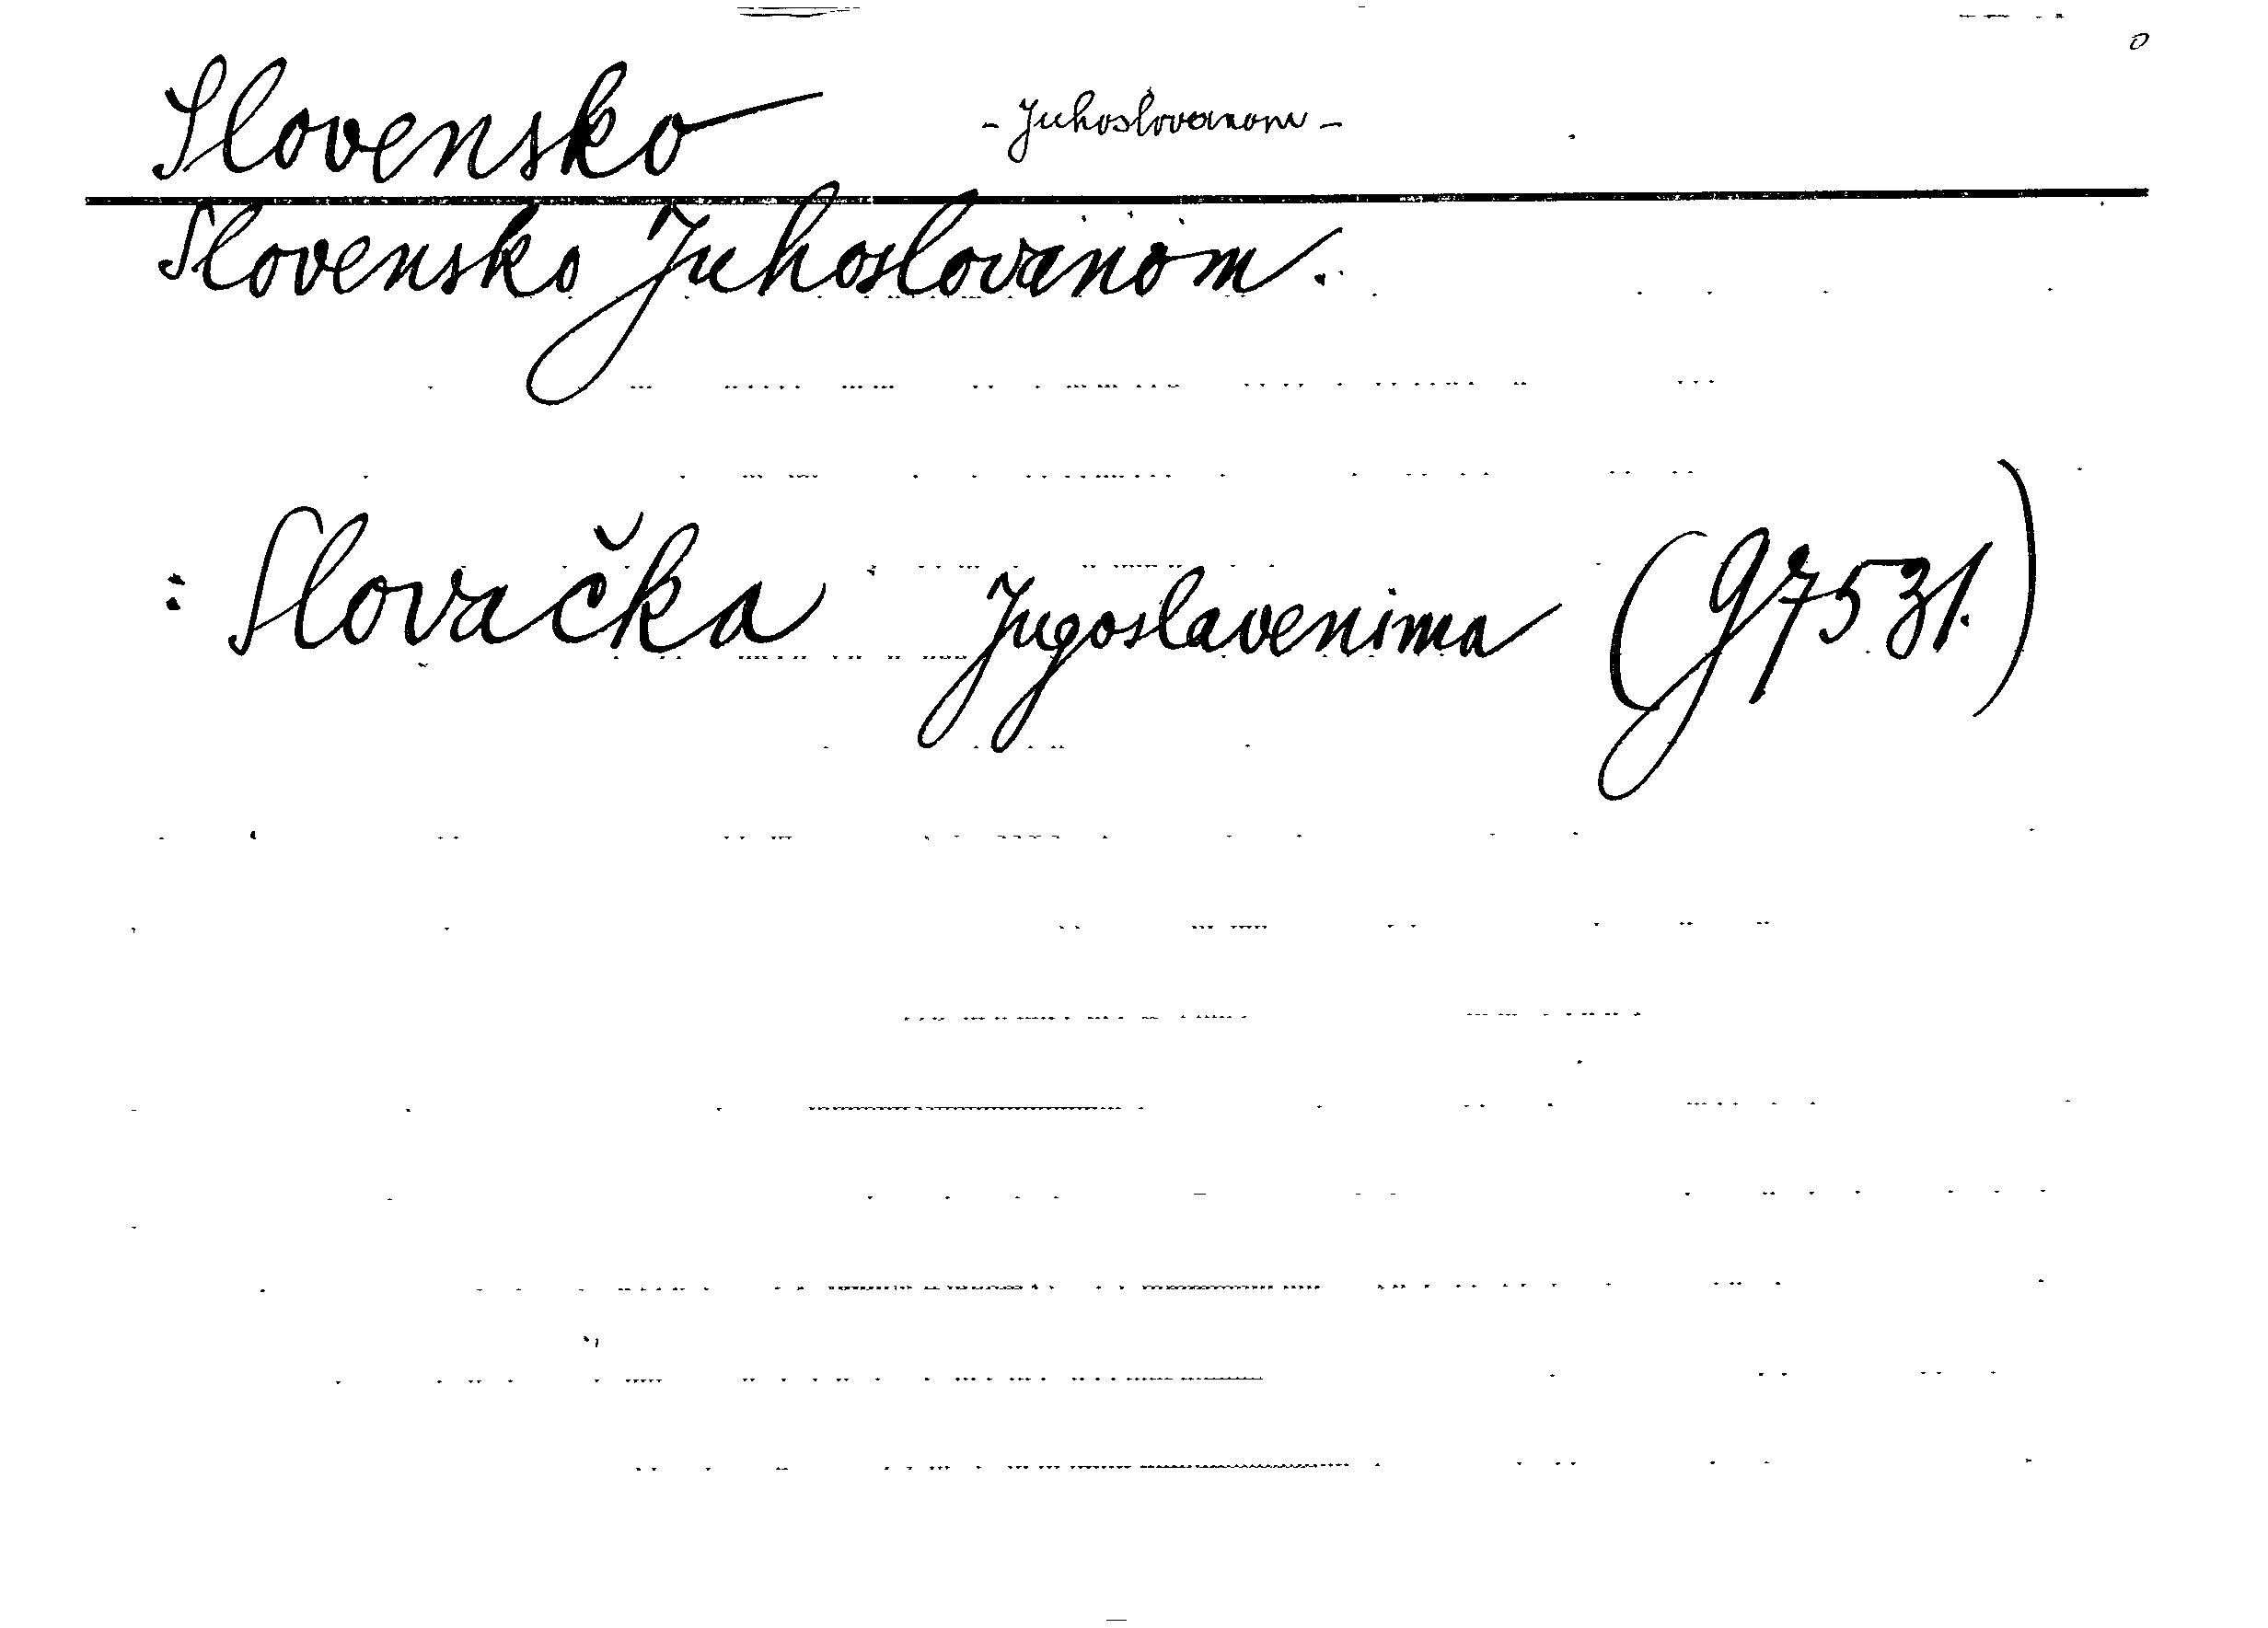 Slovensko - Juhoslovanom -
Slovensko Juhoslovanom.
: Slovačka Jugoslavenima (g7531.)